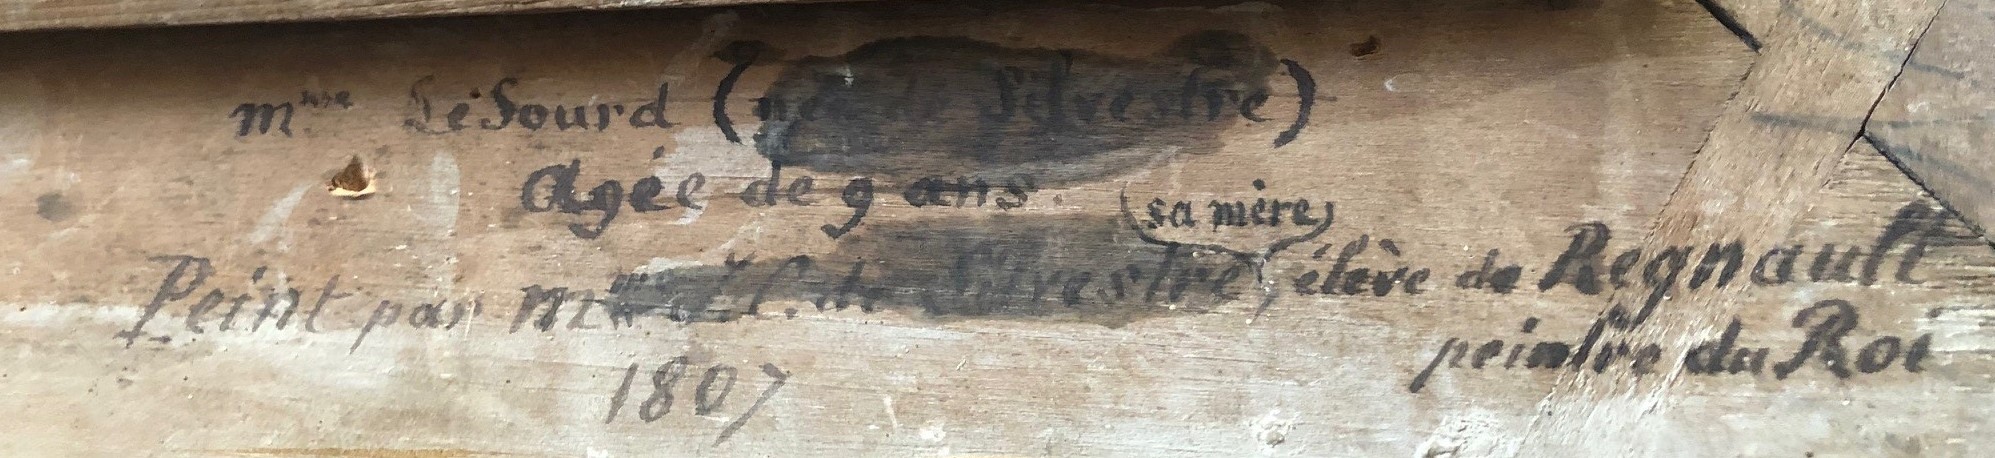 mme LeSourd (née de Silvestre)
Agée de 9 ans.
(sa mère)
Peint par de Silvestre, élève de Regnault
peintre du Roi
1807